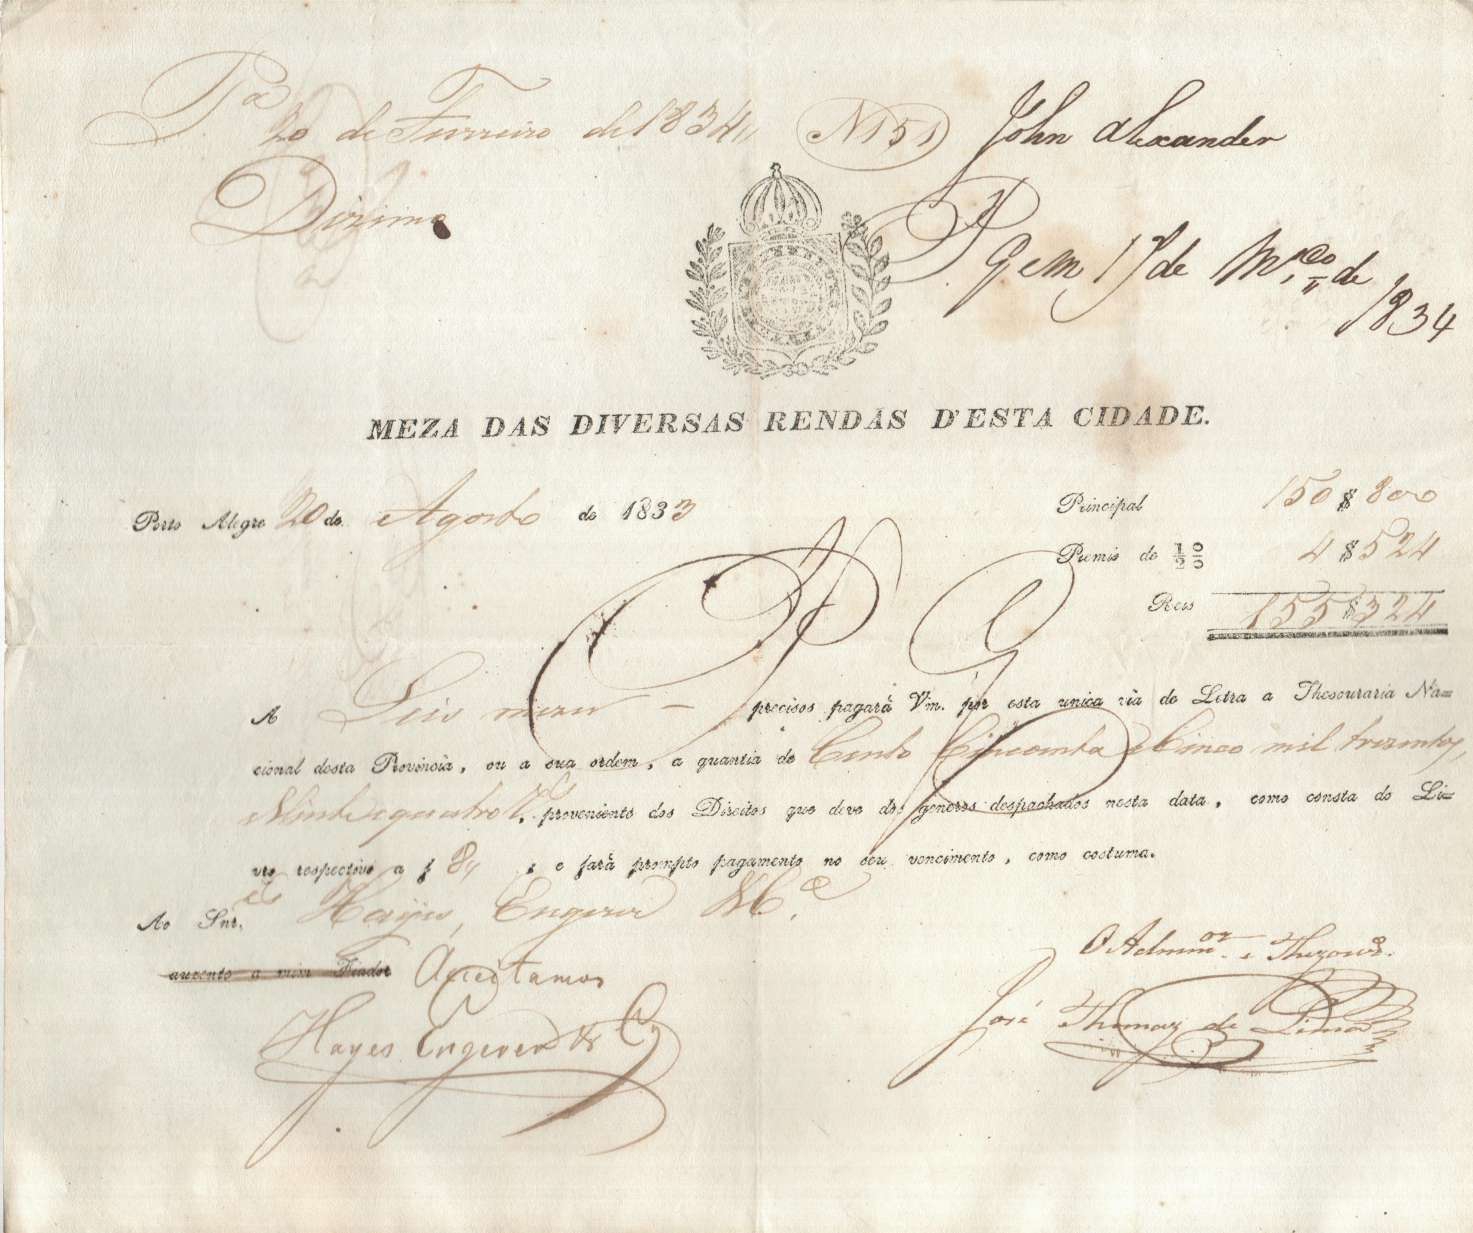 Pª 20 de Fevereiro de 1834
Nº 151
John Alexander
Dizimo
Pg em 17 de Mço de
1834
MEZA DAS DIVERSAS RENDAS D'ESTA CIDADE.
Porto Alegre 20 de Agosto de 1833
Principal 150$800
Premio de ½ % 4$524
Reis 155$324
Pg
A Seis mezes precisos pagará Vm. por esta unica via de Letra a Thesouraria Na=
cional desta Provincia, ou a sua ordem, a quantia de Cento Cincoenta e Cinco mil trezentos,
Vinte e quatro rs, proveniente dos Direitos que deve dos generos despachados nesta data, como consta do Li=
vro respectivo a f 84 ; e fará prompto pagamento no seu vencimento, como costuma.
Ao Snr.es Hayes, Engerer & Cª
auzente a seu Fiador Aceitamos
Hayes Engerer & Cª
O Admmor e Thezouro.
José Thomaz de Lima